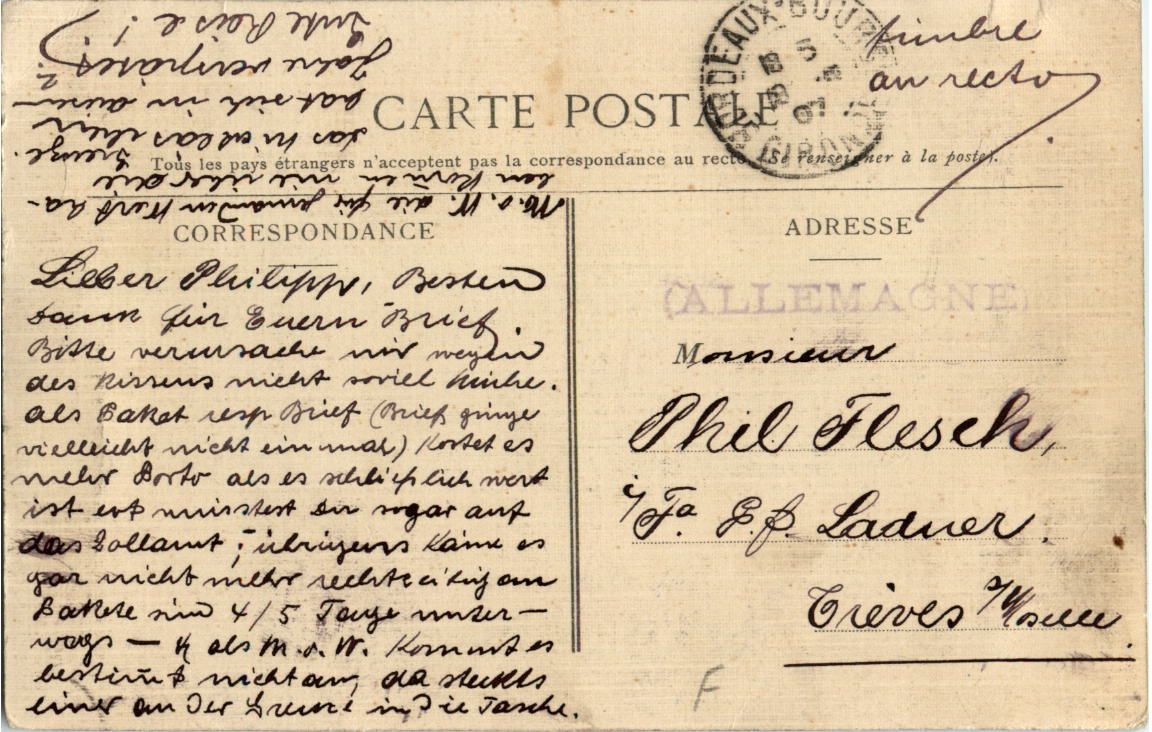 timbre
au recto
BORDEAUX-BOURSE
GIRONDE
CARTE POSTALE
Tous les pays étrangers n'acceptent pas la correspondance au recto. (Se renseigner à la poste).
CORRESPONDANCE
Lieber Philipp, Besten
Dank für Euern Brief.
Bitte verursache mir wegen
des Kissens nicht soviel Mühe.
als Paket resp Brief (Brief ginge
vielleicht nicht einmal) kostet es
mehr Porto als es schließlich wert
ist evt müsstest Du sogar auf
das Zollamt; übrigens käme es
gar nicht mehr rechtzeitig an
Pakete sind 4/5 Tage unter-
wegs — & als M. o. W. kommt es
bestimt nicht an, da steckts
einer an der Grenze in die Tasche.
M. o. W. die für jemanden Wert ha-
ben komen nie über die
Grenze.
Das Nicolas
hat sich in
Jahre verspätet
Gute Reise!
ADRESSE
(ALLEMAGNE)
Monsieur
Phil Flesch,
i/Fa Ladner.
Trèves s/Moselle.
F